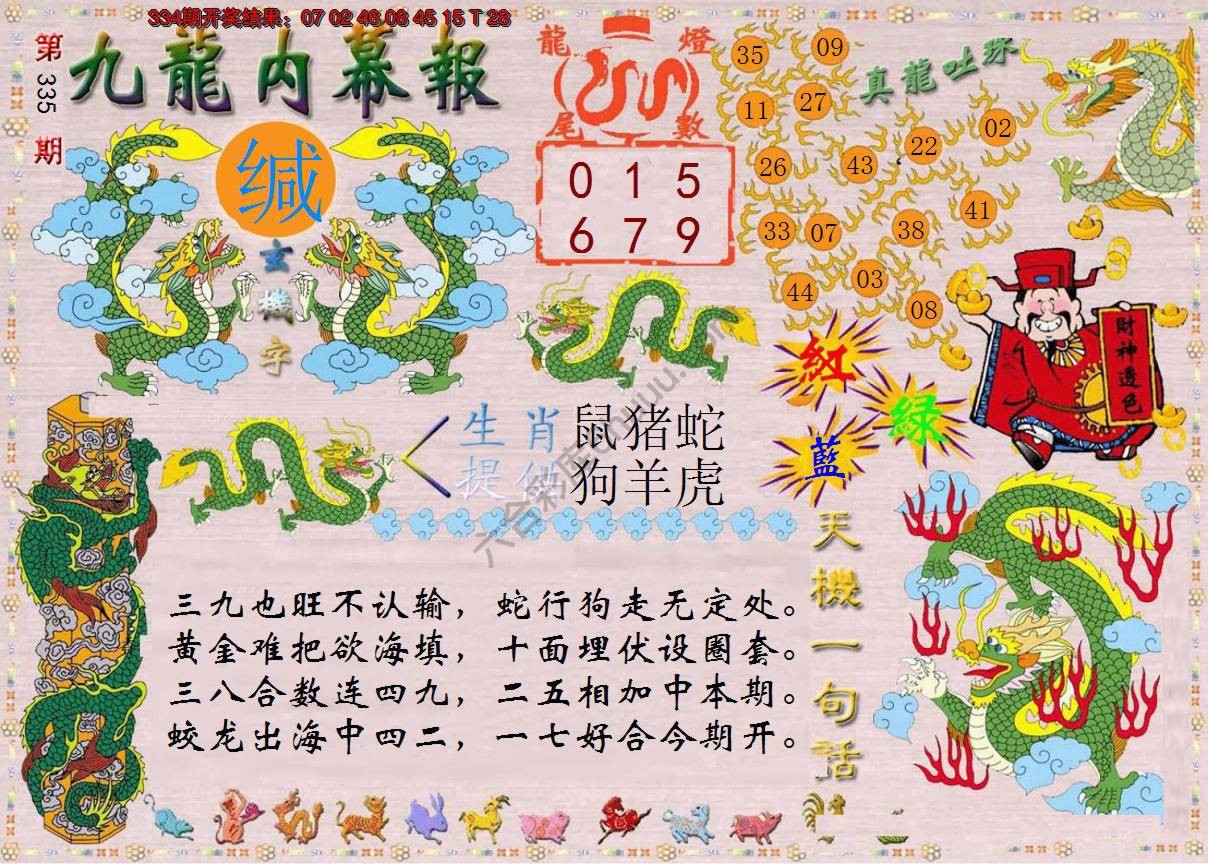 334期开奖结果：07 02 46 08 45 15 T 28
第335期
九龍内幕報
缄
玄機字
龍燈
尾數
0 1 5
6 7 9
真龍吐珠
35
09
11
27
22
02
26
43
41
33
07
38
44
03
08
財神透色
紅
绿
藍
生肖
提供
鼠猪蛇
狗羊虎
天機一句話
三九也旺不认输，蛇行狗走无定处。
黄金难把欲海填，十面埋伏设圈套。
三八合数连四九，二五相加中本期。
蛟龙出海中四二，一七好合今期开。